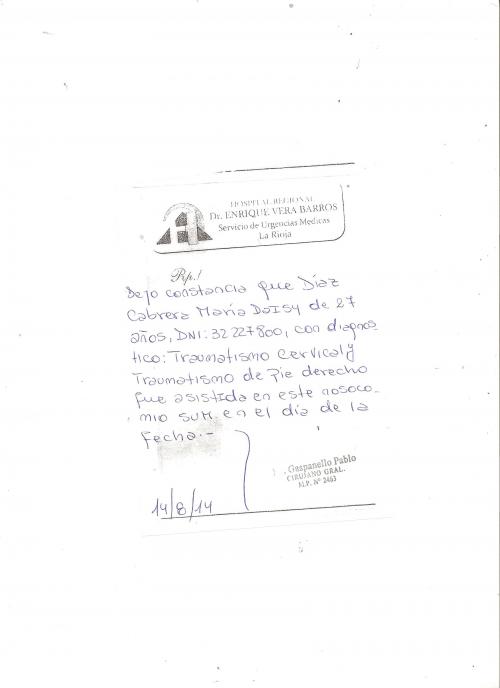 HOSPITAL REGIONAL
Dr. ENRIQUE VERA BARROS
Servicio de Urgencias Medicas
La Rioja
Rp.!
Dejo constancia que Díaz
Cabrera María Daisy de 27
años, DNI: 32227800, con diagnos
tico: Traumatismo Cervical y
Traumatismo de Pie derecho
fue asistida en este nosoco-
mio SUM en el día de la
Fecha.-
Gaspanello Pablo
CIRUJANO GRAL.
M.P. Nº 2463
14/8/14